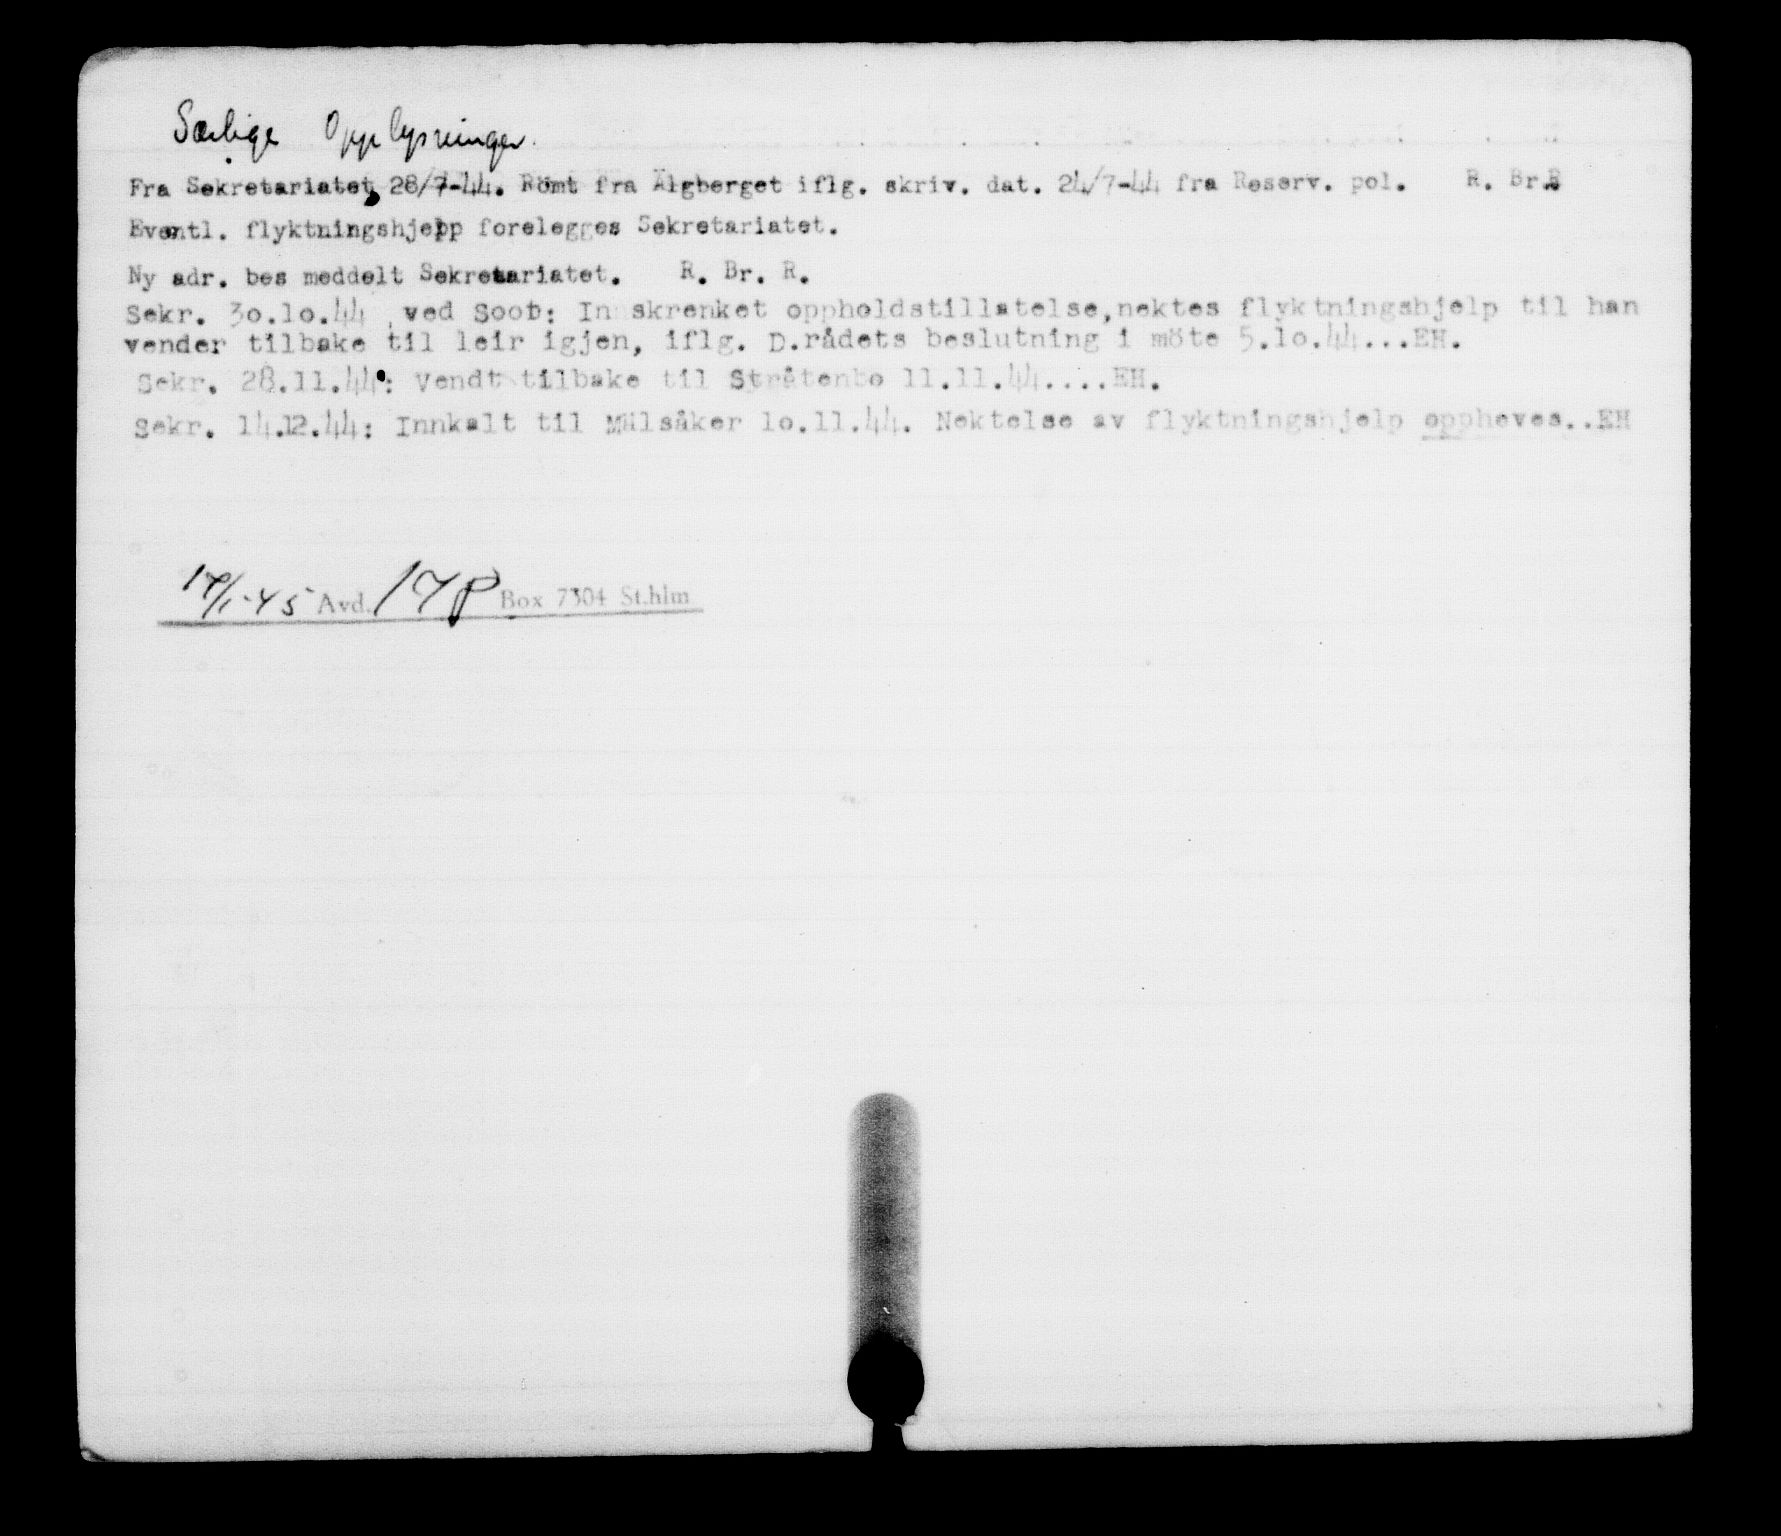 Særlige Opplysninger.
Fra Sekretariatet, 28/7-44. Römt fra Älgberget iflg. skriv. dat. 24/7-44 fra Reserv. pol. R. Br.R
Eventl. flyktningshjelp forelegges Sekretariatet.
Ny adr. bes meddelt Sekretariatet. R. Br. R.
Sekr. 3o.1o.44 ved Soot: Innskrenket oppholdstillatelse,nektes flyktningshjelp til han
vender tilbake til leir igjen, iflg. D.rådets beslutning i möte 5.1o.44...EH.
Sekr. 28.11.44: Vendt tilbake til Stråtenbo 11.11.44....EH.
Sekr. 14.12.44: Innkalt til Mälsåker 1o.11.44. Nektelse av flyktningshjelp oppheves..EH
17/1-45 Avd. 17P Box 7304 St.hlm